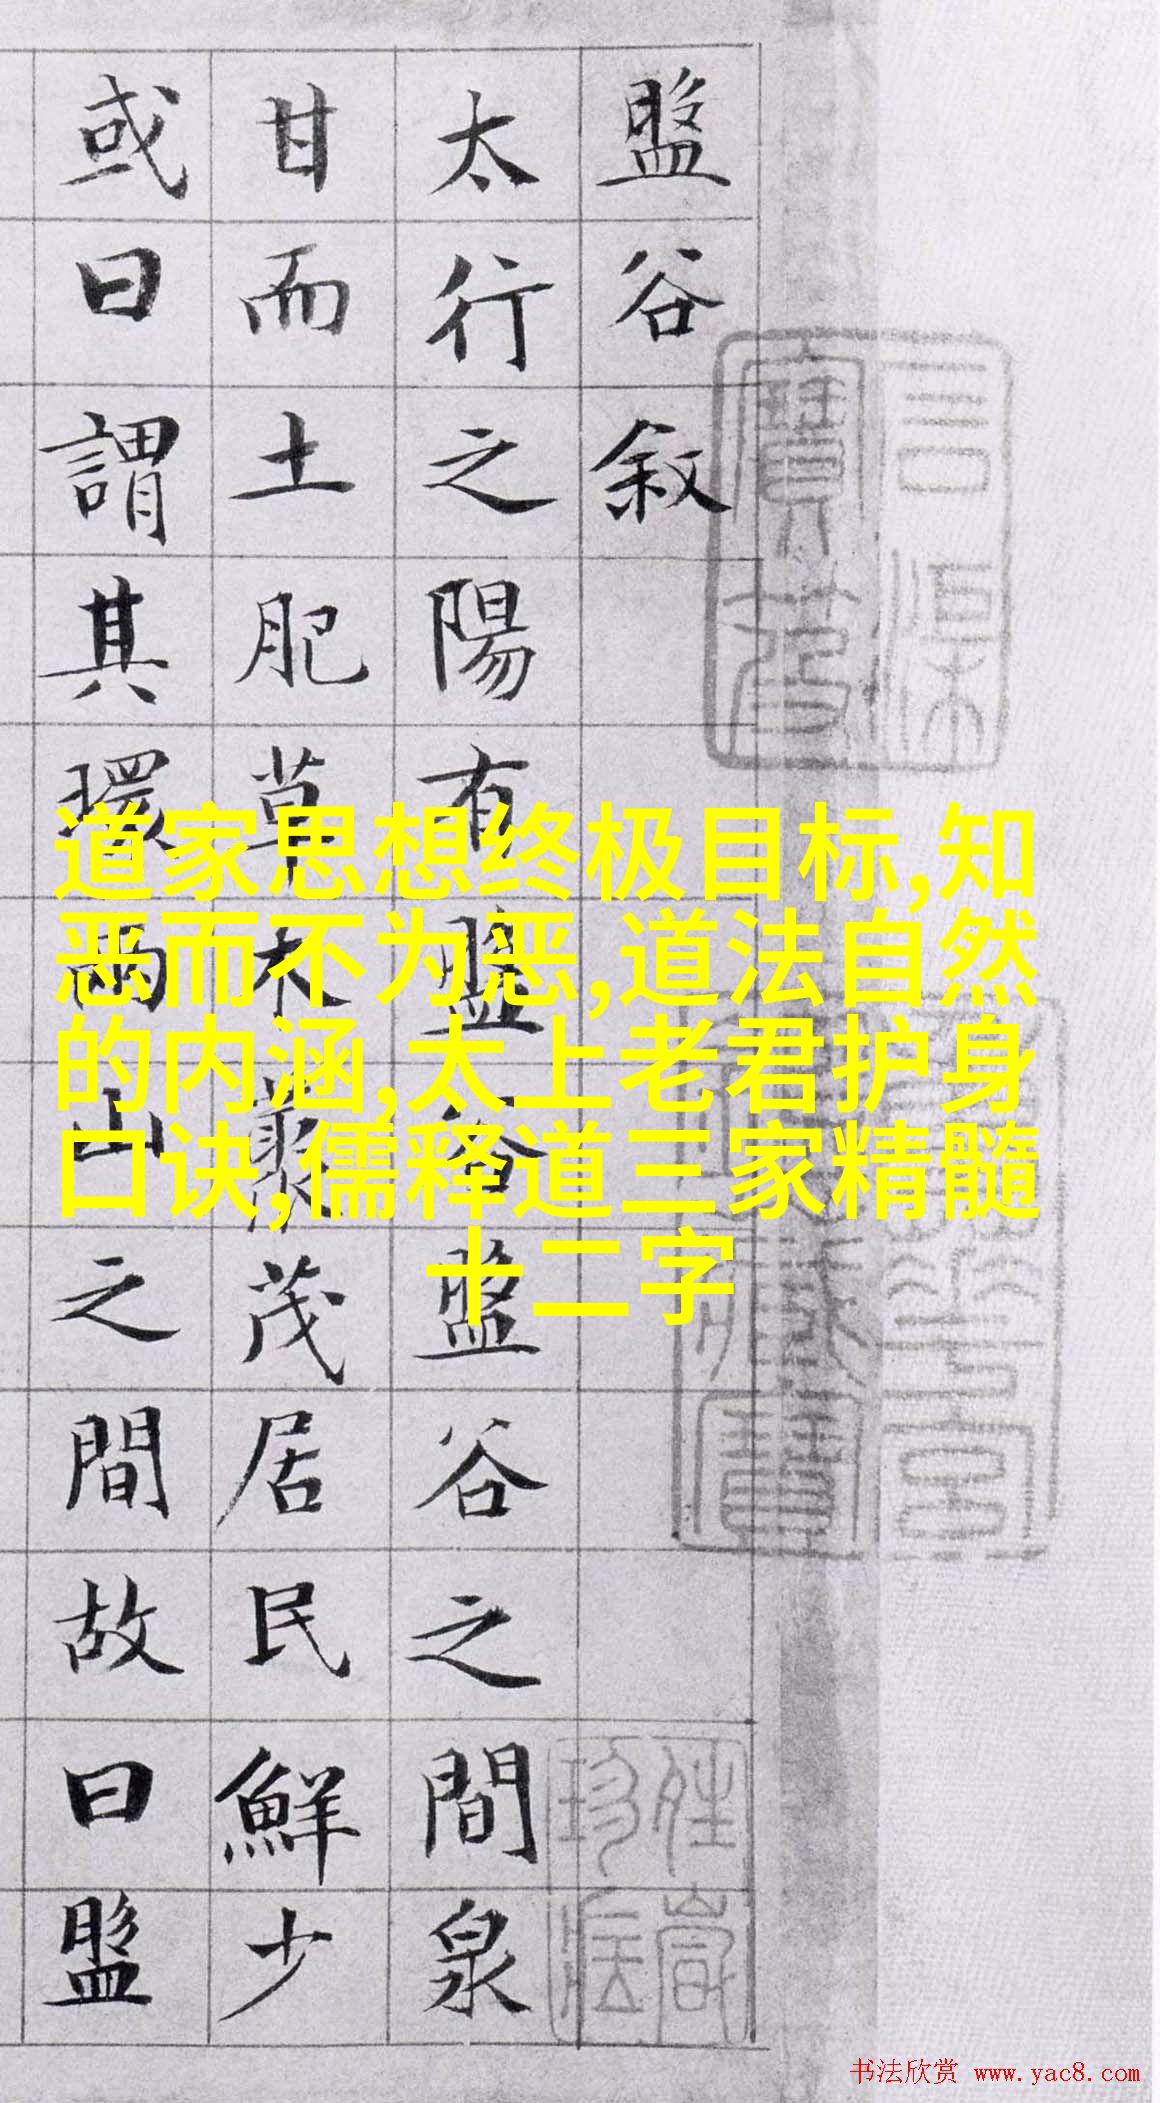 盤谷敘
太行之陽有盤谷盤谷之間泉
甘而土肥草木叢茂居民鮮少
或曰謂其環兩山之間故曰盤
道家思想终极目标,知
恶而不为恶,道法自然
的内涵,太上老君护身
口诀,儒释道三家精髓
十二字
书法欣赏 www.yac8.com